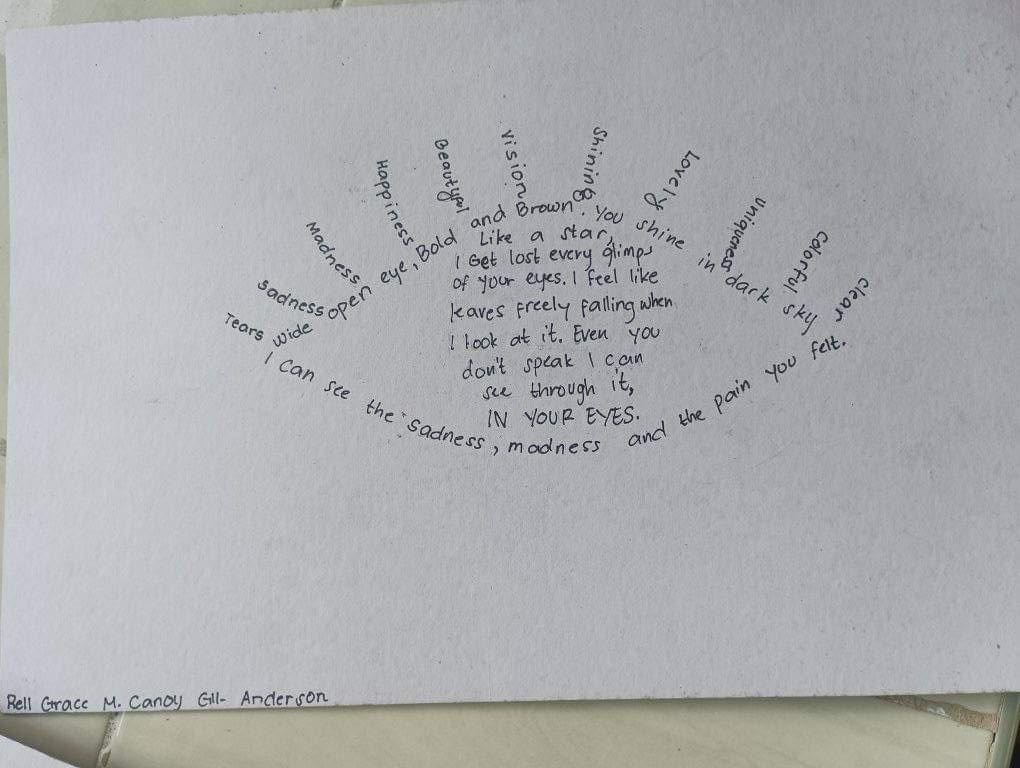 Tears
Sadness
Madness
Happiness
Beautyful
Vision
Shining
Lovely
uniqueness
colorful
clear
wide open eye, Bold and Brown. You shine in dark sky
Like a star,
I Get lost every glimps
of your eyes. I feel like
leaves freely falling when
I look at it. Even you
don't speak I can
see through it,
IN YOUR EYES.
I can see the sadness, madness and the pain you felt.
Rell Grace M. Canoy Gill- Anderson